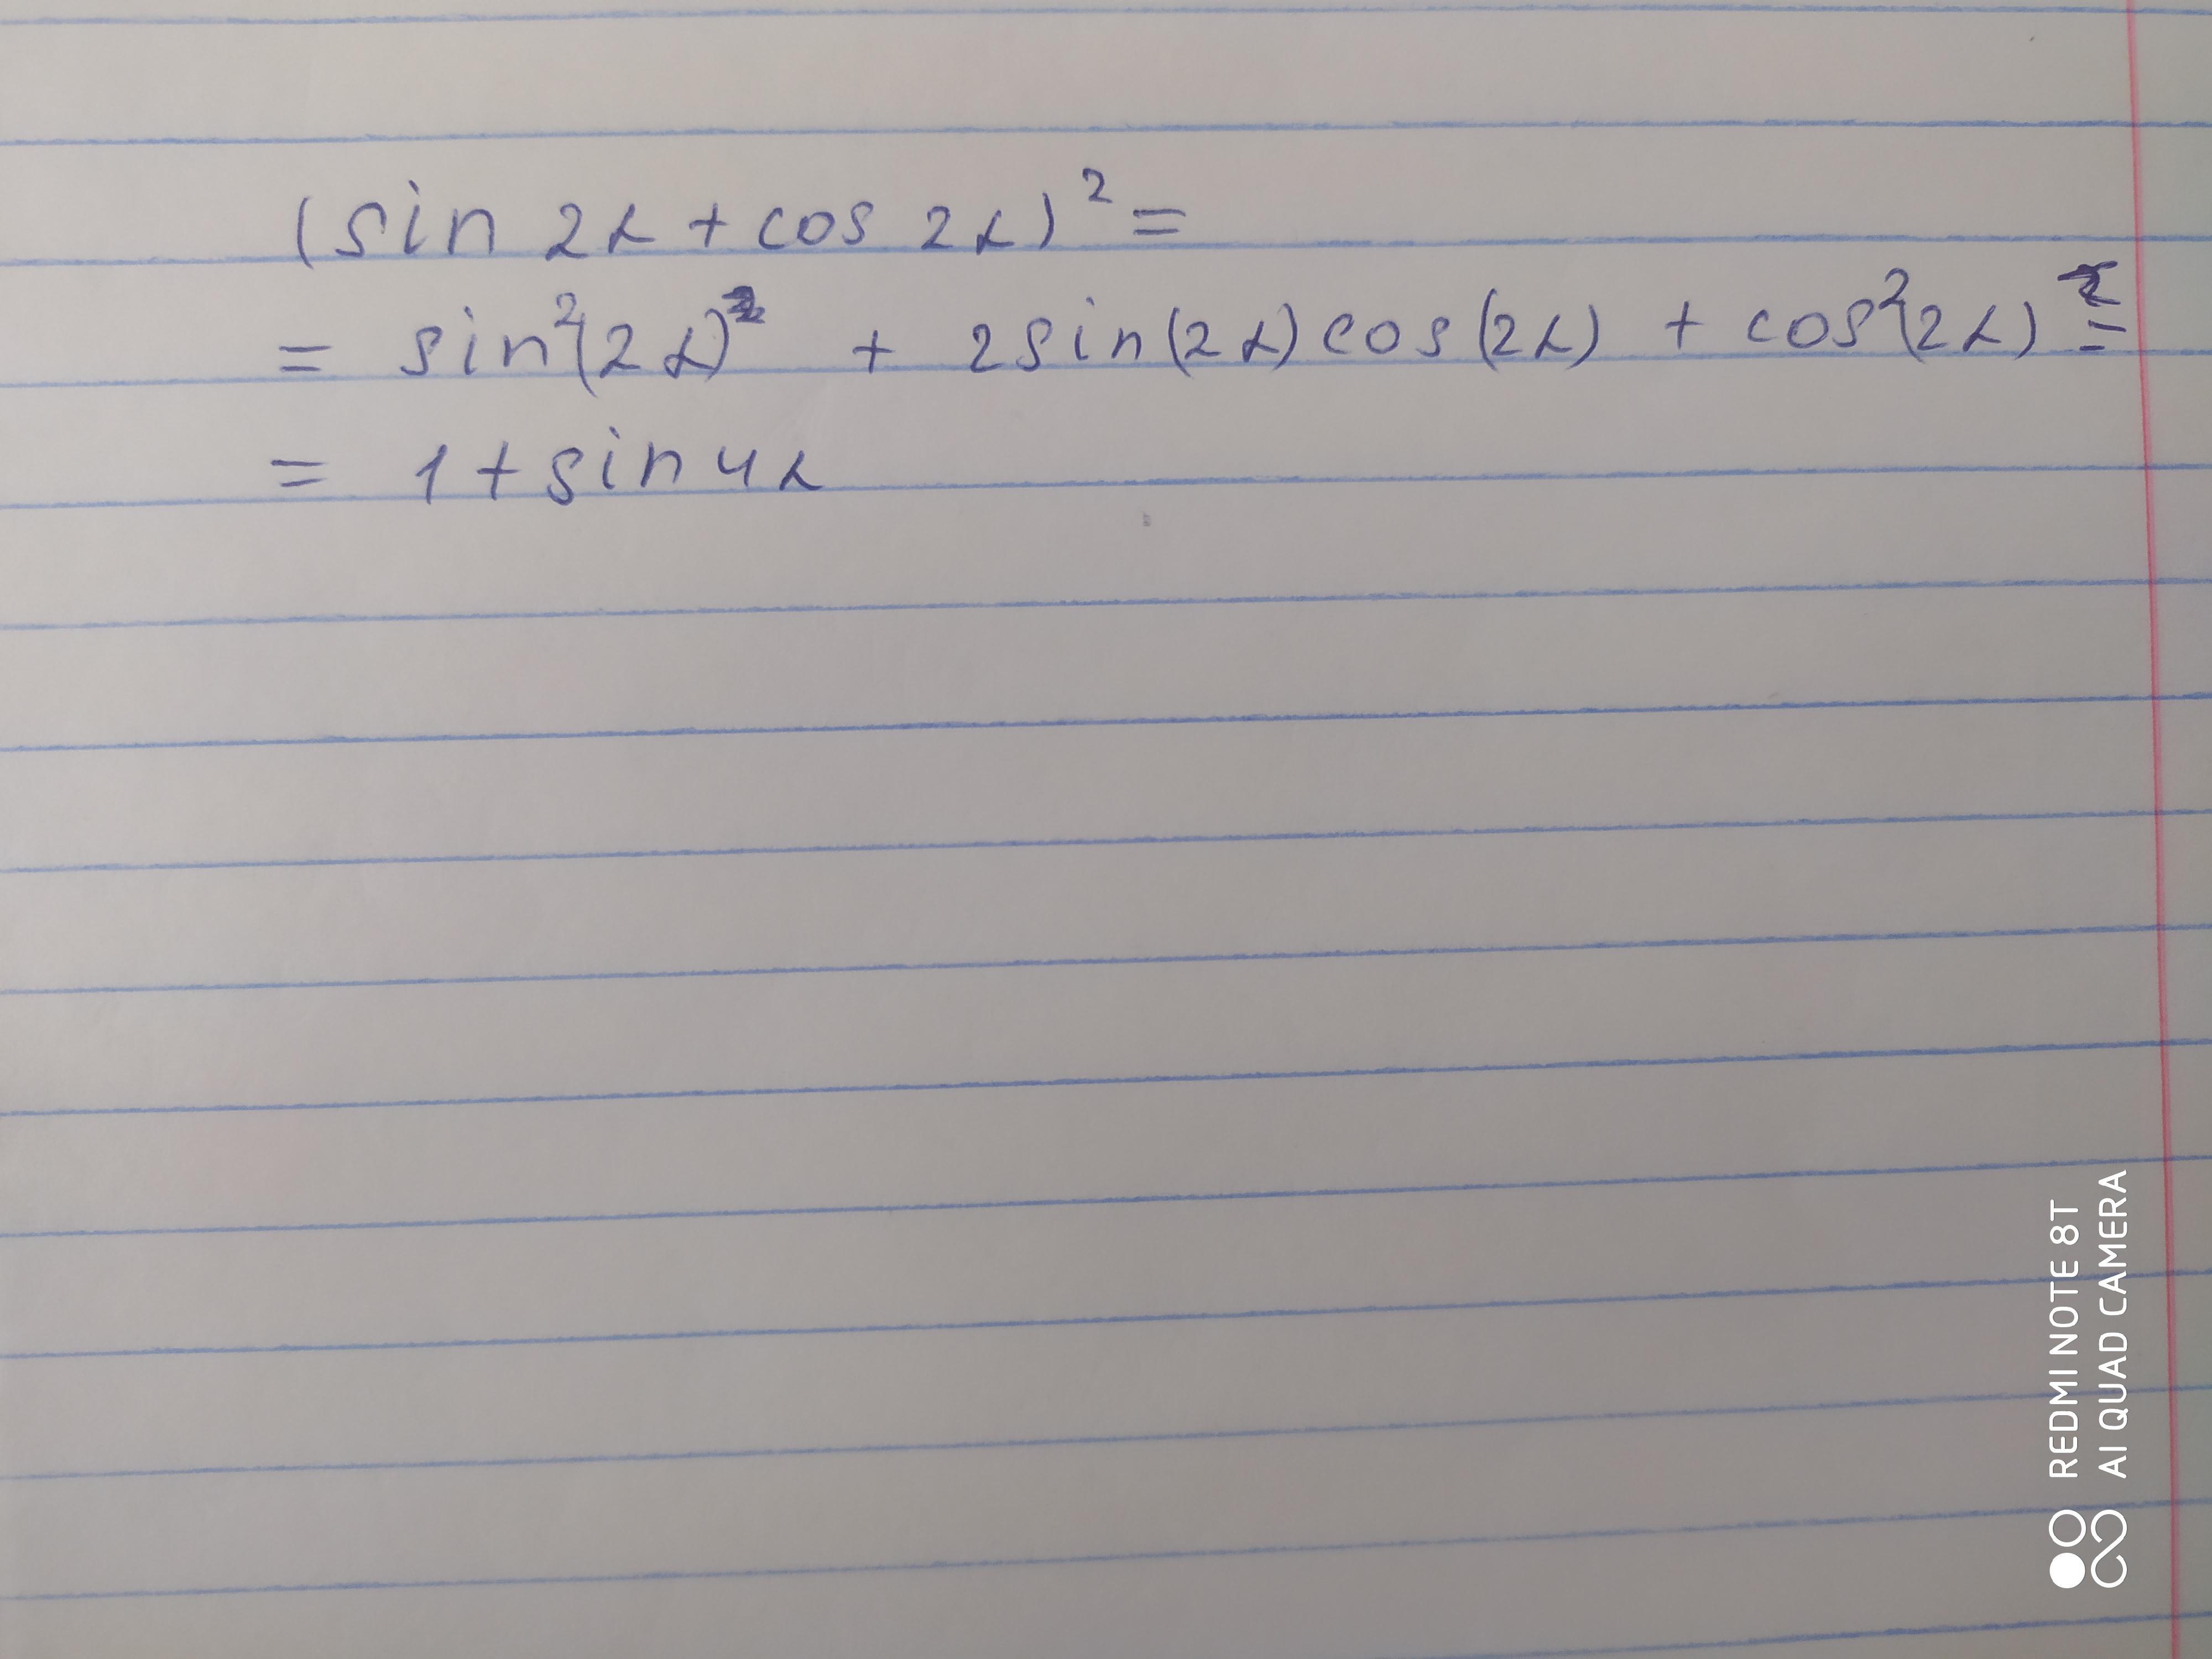 (sin 2α + cos 2α)² =
= sin²(2α) + 2sin(2α)cos(2α) + cos²(2α) =
= 1 + sin 4α
REDMI NOTE 8T
AI QUAD CAMERA